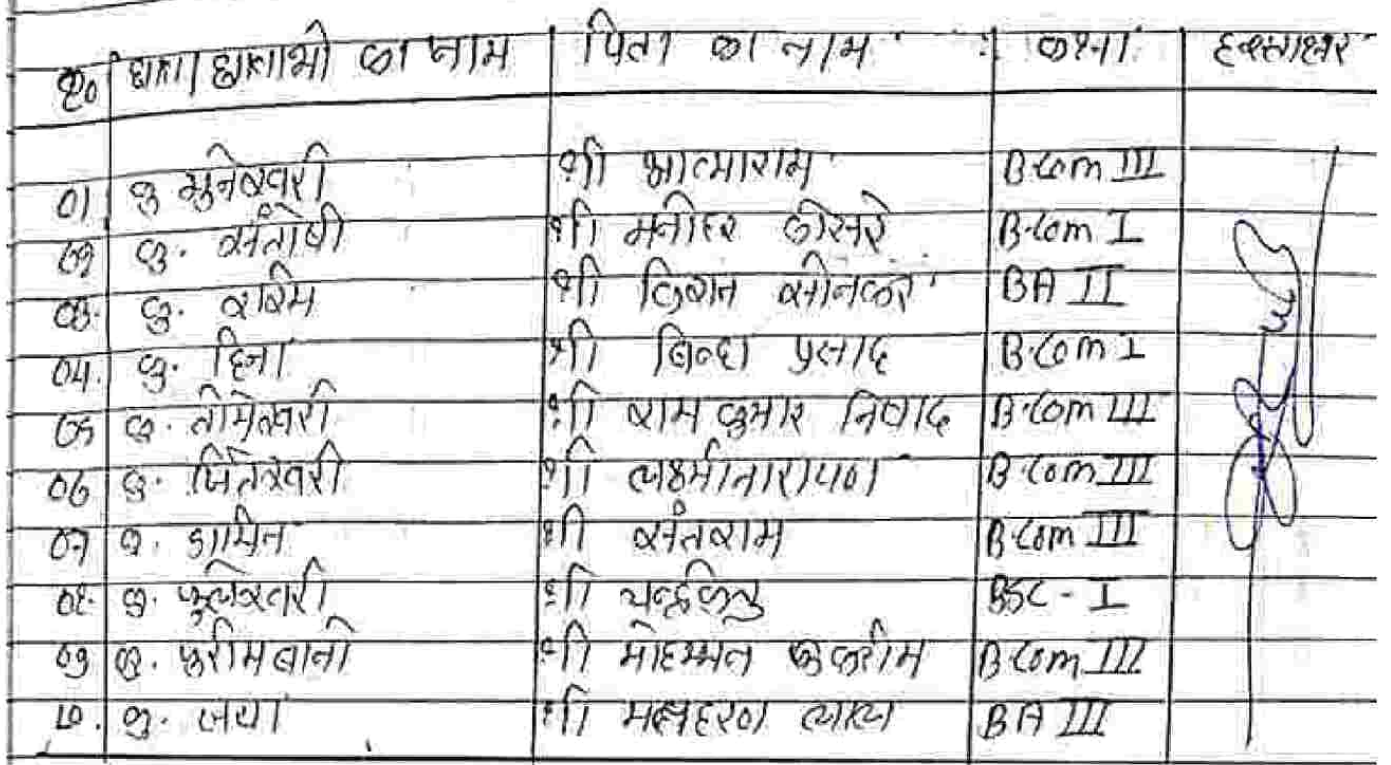 क्र० छात्र/छात्राओ का नाम पिता का नाम कक्षा हस्ताक्षर
01 कु मुनेश्वरी श्री आत्माराम B.Com III
02 कु. संतोषी श्री मनोहर कोसरे B.Com I
03. कु. रश्मि श्री किशन सोनकर BA II
04. कु. हिना श्री बिन्दा प्रसाद B.Com I
05 कु. तोमेश्वरी श्री राम कुमार निषाद B.Com III
06 कु. मितेश्वरी श्री लक्ष्मीनारायण B.Com III
07 कु. डामिन श्री संतराम B.Com III
08. कु. फुलेश्वरी श्री चन्द्रकेतु BSC - I
09 कु. करीम बानो श्री मोहम्मत B.Com III
10. कु. जया श्री BA III